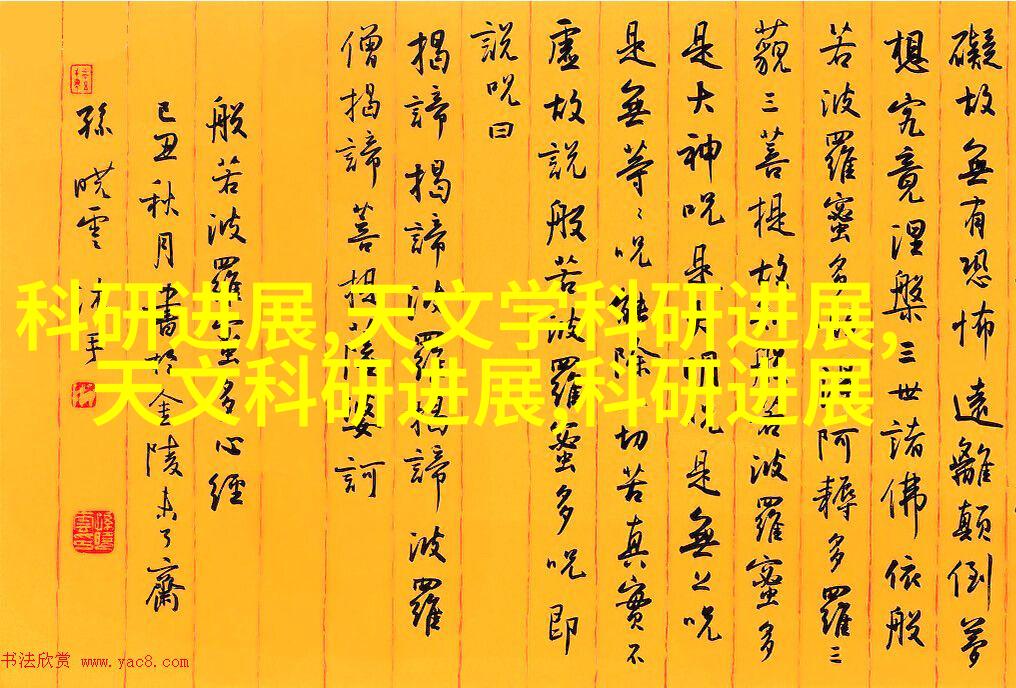 礙故無有恐怖遠離顛倒夢
想究竟涅槃三世諸佛依般
若波羅蜜多故得阿耨多羅三
藐三菩提故知般若波羅蜜多
是大神呪是大明呪是無上呪
是無等〻呪能除一切苦真實不
虛故說般若波羅蜜多呪即
說呪曰
揭諦揭諦波羅揭諦波羅
僧揭諦菩提薩婆訶
般若波羅蜜多心經
己丑秋月書於金陵未了齋
孫曉雲沐手
科研进展,天文学科研进展,
天文科研进展,科研进展
书法欣赏 www.yac8.com